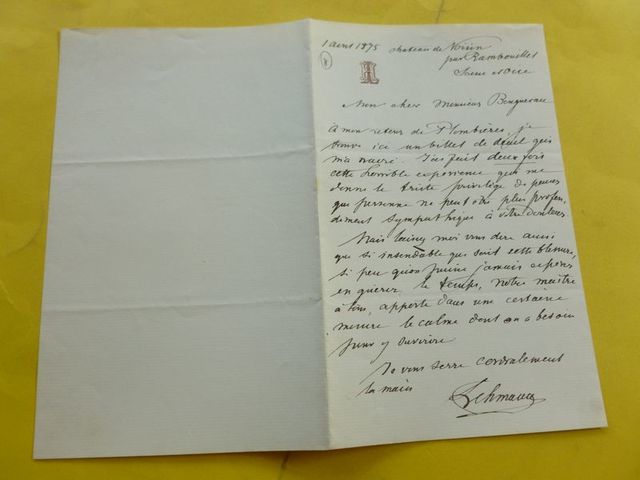 1 août 1875 château de Voisin
par Rambouillet
Seine et Oise
Mon cher Monsieur Bouguereau
à mon retour de Plombières, je
trouve ici un billet de deuil qui
m'a navré. J'ai fait deux fois
cette horrible expérience qui me
donne le triste privilège de penser
que personne ne peut être plus profon
dément sympathique à votre douleur
Mais laissez moi vous dire aussi
que si insondable que soit cette blessure,
si peu qu'on puisse jamais espérer
en guérir le temps, notre maître
à tous, apporte dans une certaine
mesure le calme dont on a besoin
pour y survivre
Je vous serre cordialement
la main
Lehmann